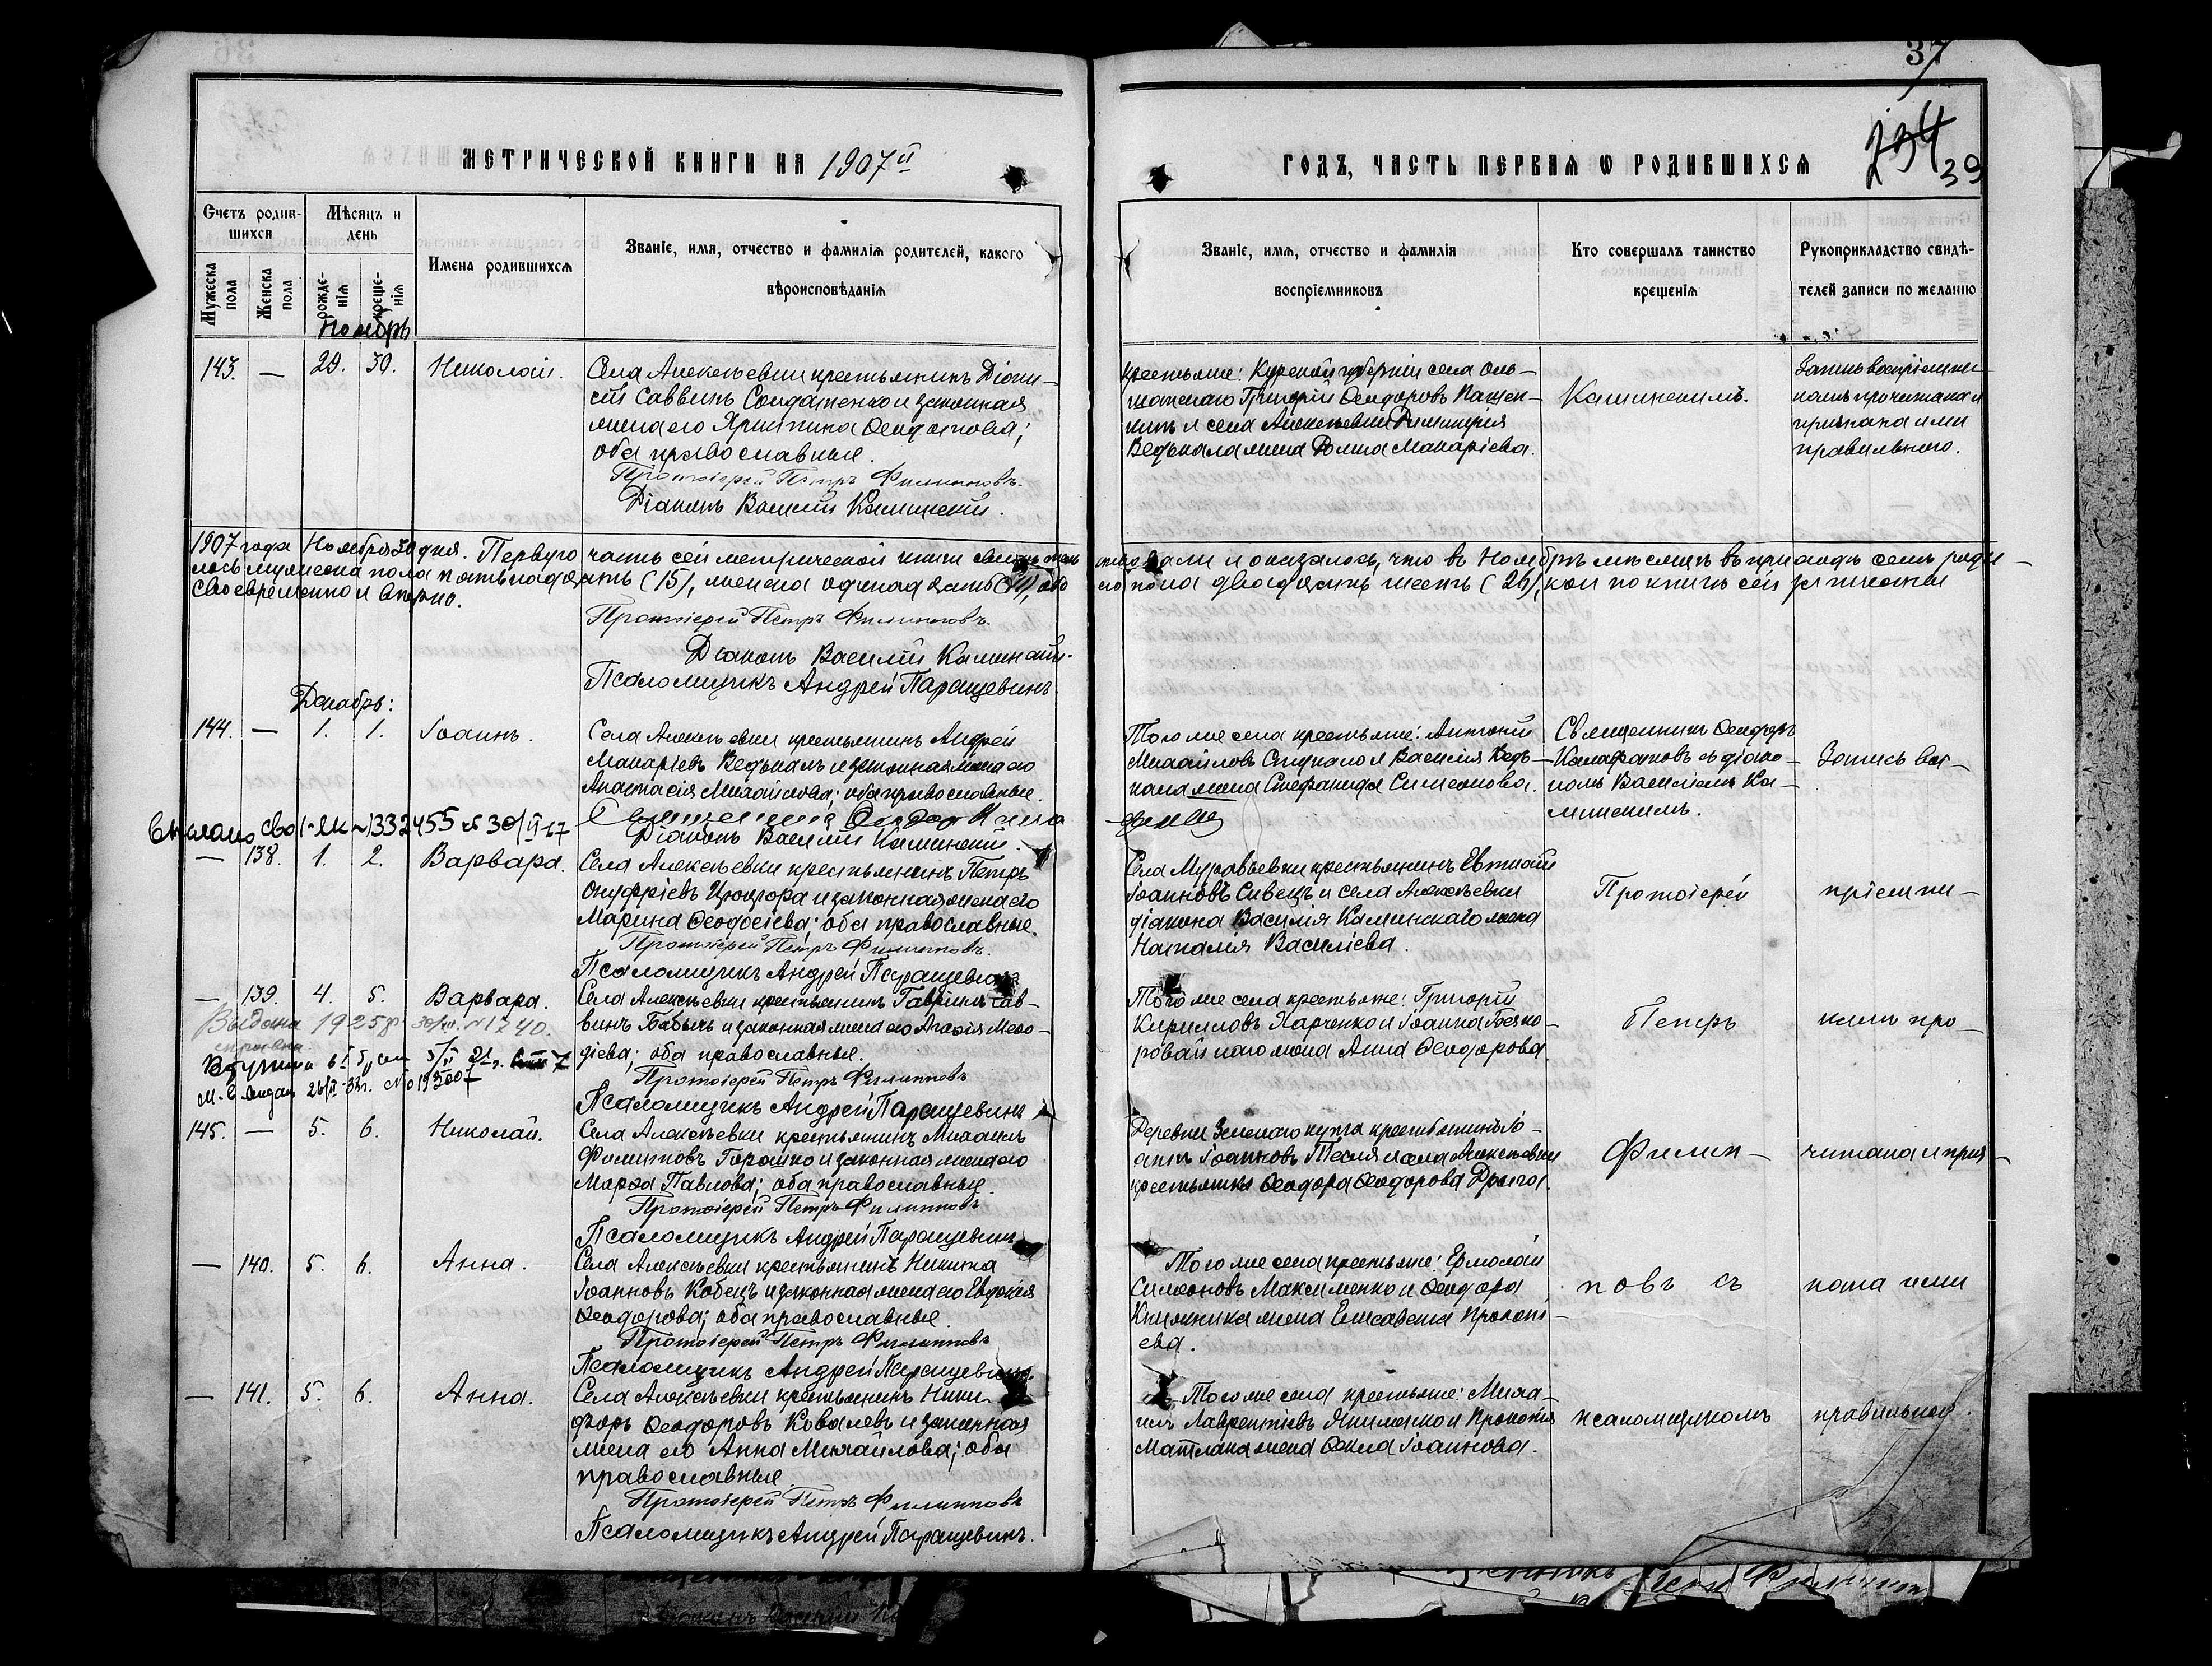 37
234
39
МЕТРИЧЕСКОЙ КНИГИ НА 1907 й
ГОДЪ, ЧАСТЬ ПЕРВАЯ Ѡ РОДИВШИХСЯ
Счетъ родив-
шихся
Мѣсяцъ и
день
Мужеска
пола
Женска
пола
рожде-
нія
креще-
нія
Имена родившихся
Званіе, имя, отчество и фамилія родителей, какого
вѣроисповѣданія
Званіе, имя, отчество и фамилія
воспріемниковъ
Кто совершалъ таинство
крещенія
Рукоприкладство свидѣ-
телей записи по желанію
Ноябрь
143. — 29. 30. Николай.
Села Алексѣевки крестьянинъ Діони-
сій Саввинъ Солдатенко и законная
жена его Христина
оба православные.
Протоіерей Петръ Филипповъ.
Діаконъ Василій Каминскій.
Крестьяне: Курской губерніи села
Григорій Ѳеодоровъ
и села Алексѣевки Димитрія
Ведькала жена Домна Макаріева.
Каминскимъ.
Запись воспріемни-
камъ прочитана и
признана ими
правильною.
1907 года Ноября 30 дня. Первую часть сей метрической книги и оказалось, что въ Ноябрѣ мѣсяцѣ въ приходѣ семъ роди-
лось мужеска пола пятьнадцать (15), женска одинадцать (11), обо-
его пола двадцать шесть (26), кои по книгѣ сей записаны
своевременно и вѣрно.
Протоіерей Петръ Филипповъ.
Діаконъ Василій Каминскій.
Псаломщикъ Андрей Паращевинъ
Декабрь:
144. — 1. 1. Іоаннъ.
Села Алексѣевки крестьянинъ Андрей
Макаріевъ Ведькалъ и законная жена его
Анастасія Михайлова; оба православные.
Діаконъ Василій Каминскій.
Того же села крестьяне: Антоній
Михайловъ и Василія Ведь-
кала жена Стефанида Симеонова.
Священникъ Ѳеодоръ
съ діако-
номъ Василіемъ Ка-
минскимъ.
Запись вос-
— 138. 1. 2. Варвара.
Села Алексѣевки крестьянинъ Петръ
Онуфріевъ и законная жена его
Марина Ѳеодосіева; оба православные.
Протоіерей Петръ Филипповъ.
Псаломщикъ Андрей Паращевинъ
Села Муравьевки крестьянинъ Евтихій
Іоанновъ Сивецъ и села Алексѣевки
діакона Василія Каминскаго жена
Наталія Василіева.
Протоіерей
пріемни-
— 139. 4. 5. Варвара.
Села Алексѣевки крестьянинъ Гавріилъ Сав-
винъ Бабычъ и законная жена его Агаѳія Меѳо-
діева; оба православные.
Протоіерей Петръ Филипповъ
Псаломщикъ Андрей Паращевинъ
Того же села крестьяне: Григорій
Кирилловъ Харченко и Іоанна
жена Анна Ѳеодорова.
Петръ
камъ про-
Выдана 1925
№ 1740.
145. — 5. 6. Николай.
Села Алексѣевки крестьянинъ Михаилъ
Филипповъ Горошко и законная жена его
Марѳа Павлова; оба православные.
Протоіерей Петръ Филипповъ
Псаломщикъ Андрей Паращевинъ
Деревни крестьянинъ Іо-
аннъ Іоанновъ и села Алексѣевки
крестьянка Ѳеодора Ѳеодорова
Филип-
читана и приз-
— 140. 5. 6. Анна.
Села Алексѣевки крестьянинъ Никита
Іоанновъ Кобецъ и законная жена его Евдокія
Ѳеодорова; оба православные.
Протоіерей Петръ Филипповъ
Псаломщикъ Андрей Паращевинъ
Того же села крестьяне: Ермолай
Симеоновъ Максименко и Ѳеодора
жена Елисавета Прокопі-
ева.
повъ съ
нана ими
— 141. 5. 6. Анна.
Села Алексѣевки крестьянинъ Ники-
форъ Ѳеодоровъ Ковалевъ и законная
жена его Анна Михайлова; оба
православные.
Протоіерей Петръ Филипповъ
Псаломщикъ Андрей Паращевинъ.
Того же села крестьяне: Миха-
илъ Лаврентіевъ и Прокопія
жена Ѳекла Іоаннова.
псаломщикомъ
правильною.